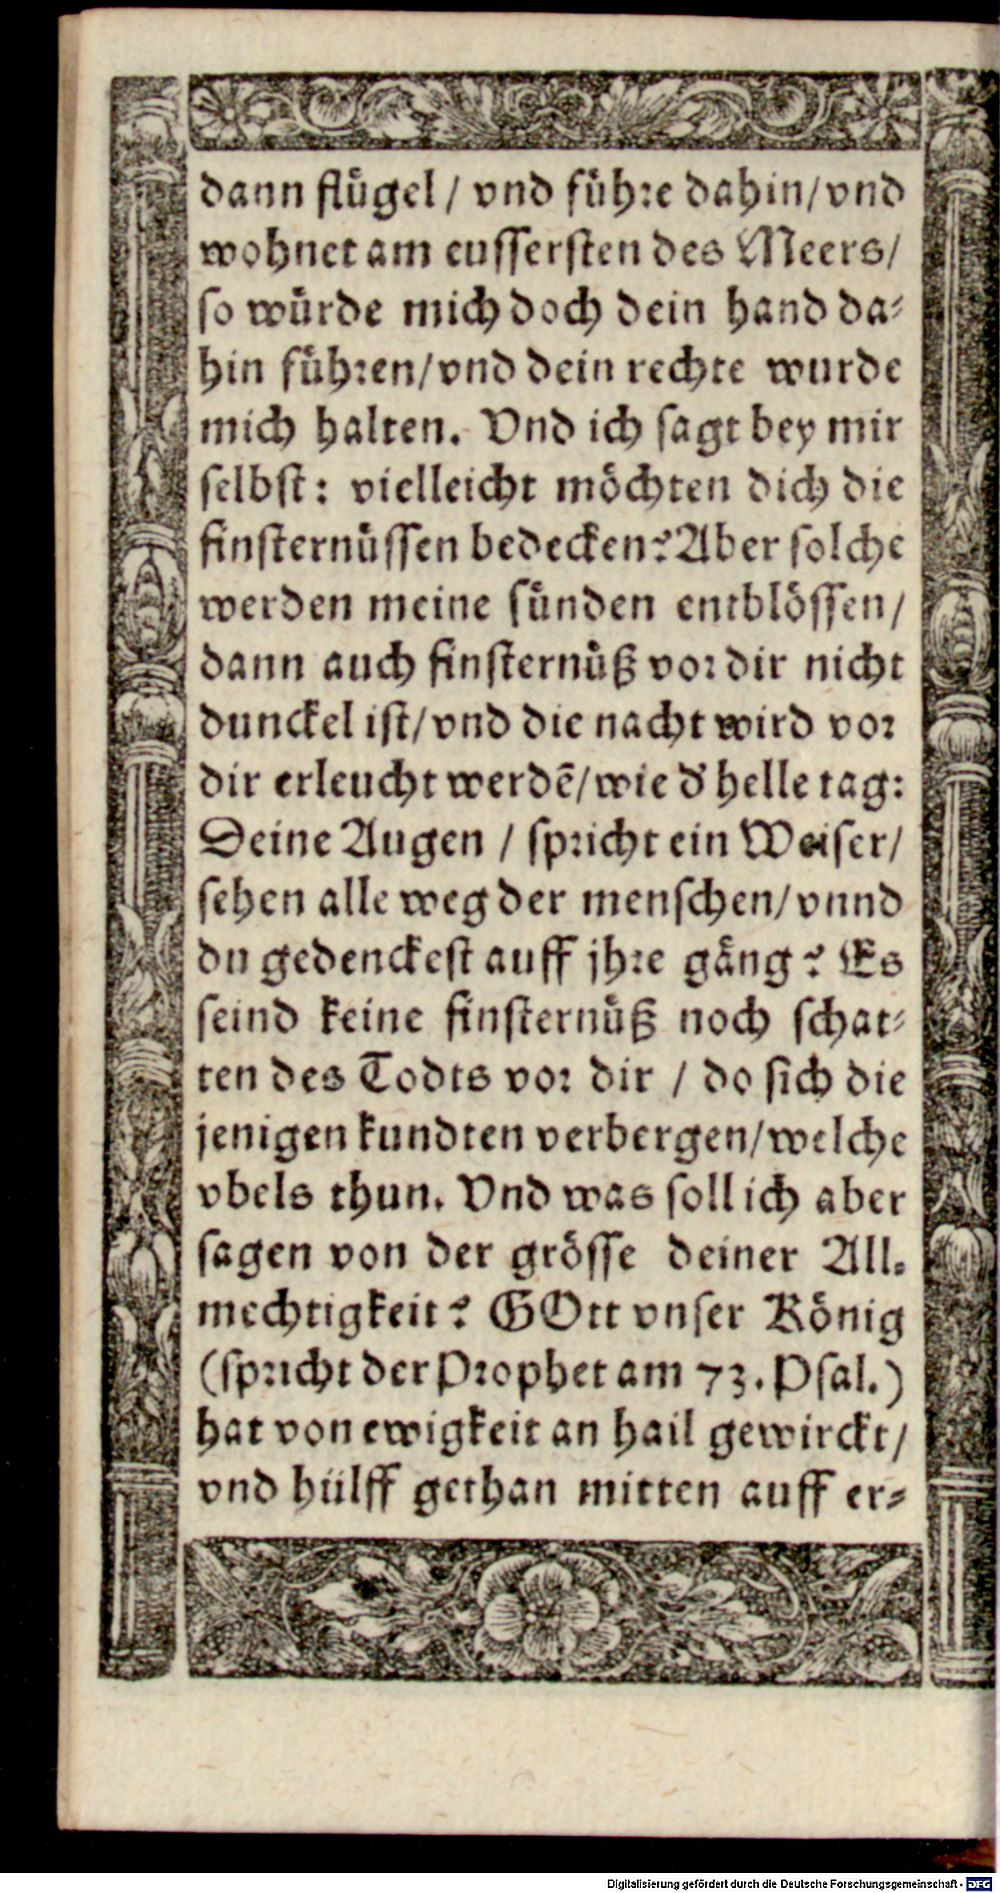 dann flügel / vnd führe dahin/vnd
wohnet am eussersten des Meers/
so würde mich doch dein hand da-
hin führen/vnd dein rechte wurde
mich halten. Vnd ich sagt bey mir
selbst: vielleicht möchten dich die
finsternüssen bedecken? Aber solche
werden meine sünden entblössen/
dann auch finsternüß vor dir nicht
dunckel ist/vnd die nacht wird vor
dir erleucht werdẽ/wie d' helle tag:
Deine Augen / spricht ein Weiser/
sehen alle weg der menschen/vnnd
du gedenckest auff jhre gäng? Es
seind keine finsternüß noch schat-
ten des Todts vor dir / do sich die
jenigen kundten verbergen/welche
vbels thun. Vnd was soll ich aber
sagen von der grösse deiner All-
mechtigkeit? GOtt vnser König
(spricht der Prophet am 73. Psal.)
hat von ewigkeit an hail gewirckt/
vnd hülff gethan mitten auff er-
Digitalisierung gefördert durch die Deutsche Forschungsgemeinschaft - DFG